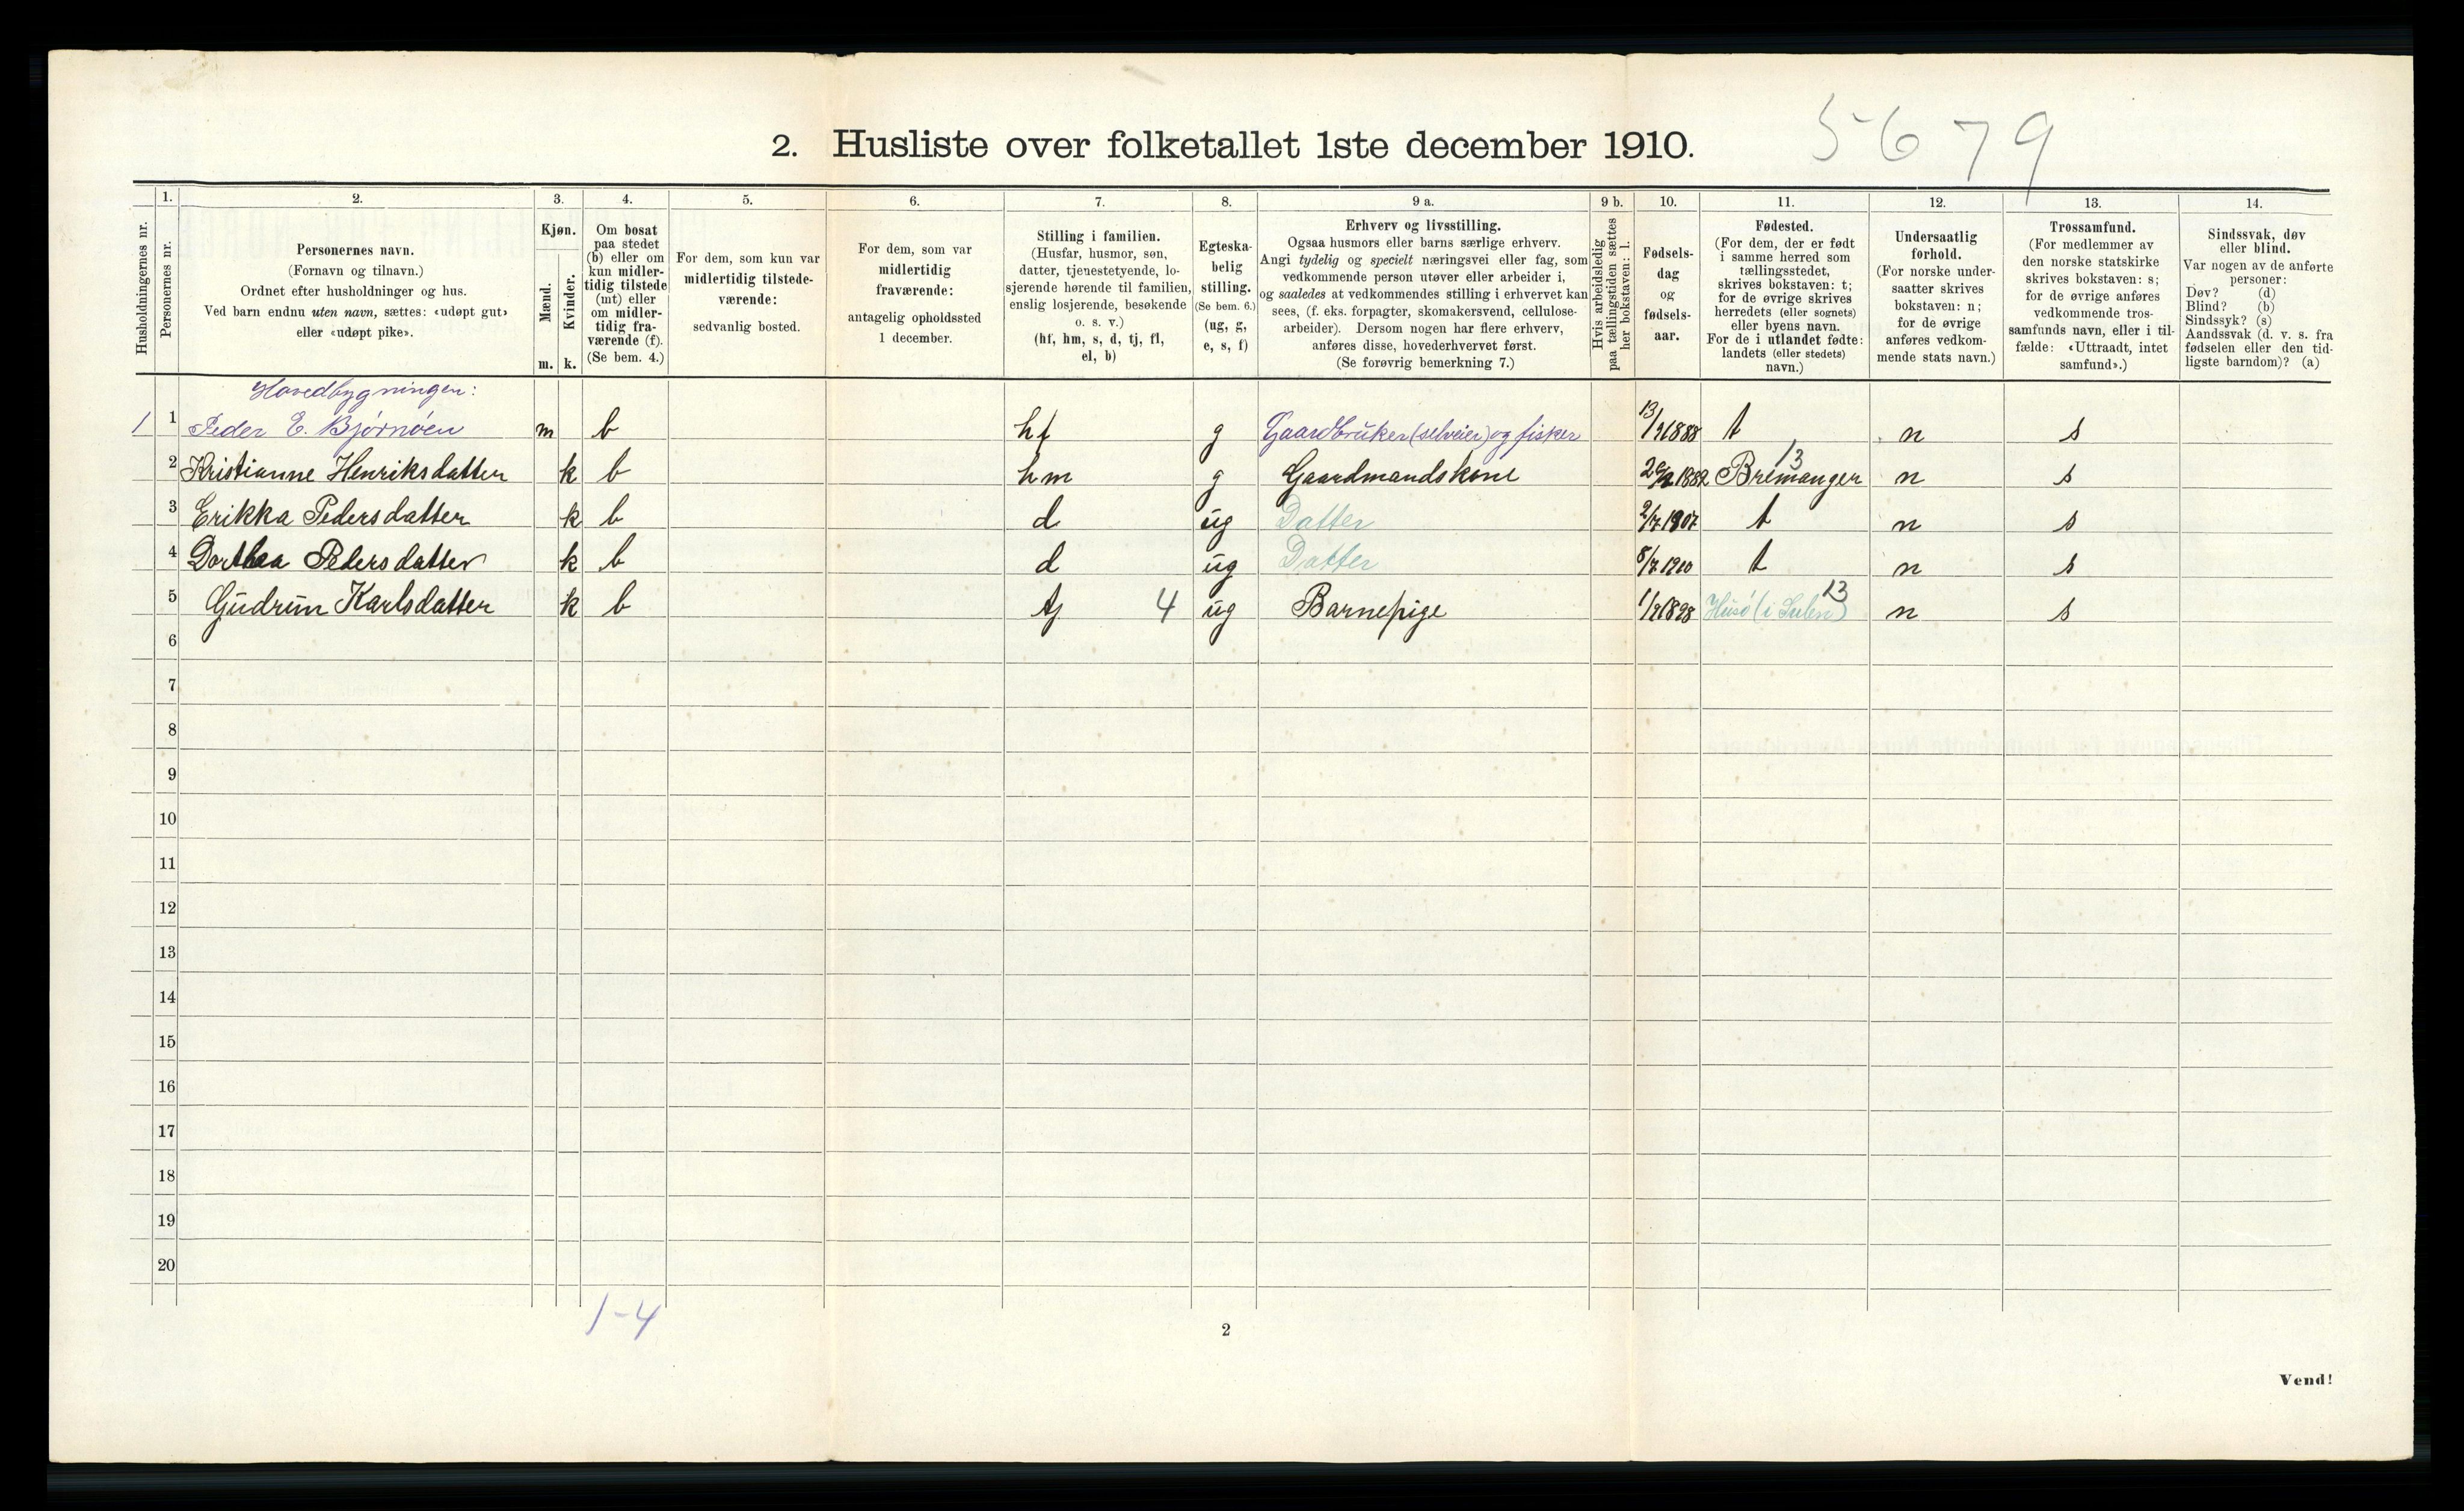 5679
2. Husliste over folketallet 1ste december 1910.
Husholdningernes nr.
1. Personernes nr.
2. Personernes navn.
(Fornavn og tilnavn.)
Ordnet efter husholdninger og hus.
Ved barn endnu uten navn, sættes: «udøpt gut»
eller «udøpt pike».
3. Kjøn.
Mænd. m.
Kvinder. k.
4. Om bosat
paa stedet
(b) eller om
kun midler-
tidig tilstede
(mt) eller
om midler-
tidig fra-
værende (f).
(Se bem. 4.)
5. For dem, som kun var
midlertidig tilstede-
værende:
sedvanlig bosted.
6. For dem, som var
midlertidig
fraværende:
antagelig opholdssted
1 december.
7. Stilling i familien.
(Husfar, husmor, søn,
datter, tjenestetyende, lo-
sjerende hørende til familien,
enslig losjerende, besøkende
o. s. v.)
(hf, hm, s, d, tj, fl,
el, b)
8. Egteska-
belig
stilling.
(Se bem. 6.)
(ug, g,
e, s, f)
9 a. Erhverv og livsstilling.
Ogsaa husmors eller barns særlige erhverv.
Angi tydelig og specielt næringsvei eller fag, som
vedkommende person utøver eller arbeider i,
og saaledes at vedkommendes stilling i erhvervet kan
sees, (f. eks. forpagter, skomakersvend, cellulose-
arbeider). Dersom nogen har flere erhverv,
anføres disse, hovederhvervet først.
(Se forøvrig bemerkning 7.)
9 b. Hvis arbeidsledig
paa tællingstiden sættes
her bokstaven: l.
10. Fødsels-
dag
og
fødsels-
aar.
11. Fødested.
(For dem, der er født
i samme herred som
tællingsstedet,
skrives bokstaven: t;
for de øvrige skrives
herredets (eller sognets)
eller byens navn.
For de i utlandet fødte:
landets (eller stedets)
navn.)
12. Undersaatlig
forhold.
(For norske under-
saatter skrives
bokstaven: n;
for de øvrige
anføres vedkom-
mende stats navn.)
13. Trossamfund.
(For medlemmer av
den norske statskirke
skrives bokstaven: s;
for de øvrige anføres
vedkommende tros-
samfunds navn, eller i til-
fælde: «Uttraadt, intet
samfund».)
14. Sindssvak, døv
eller blind.
Var nogen av de anførte
personer:
Døv? (d)
Blind? (b)
Sindssyk? (s)
Aandssvak (d. v. s. fra
fødselen eller den tid-
ligste barndom)? (a)
Hovedbygningen:
1 1 Peder E. Bjørnøen m b hf g Gaardbruker (selveier) og fisker t n s
2 Kristianne Henriksdatter k b hm g Gaardmandskone Bremanger 13 n s
3 Erikka Pedersdatter k b d ug Datter 2/7 1907 t n s
4 Dorthea Pedersdatter k b d ug Datter 8/7 1910 t n s
5 Gudrun Karlsdatter k b tj 4 ug Barnepige Husö (i Sulen) 13 n s
6
7
8
9
10
11
12
13
14
15
16
17
18
19
20
1-4
2
Vend!